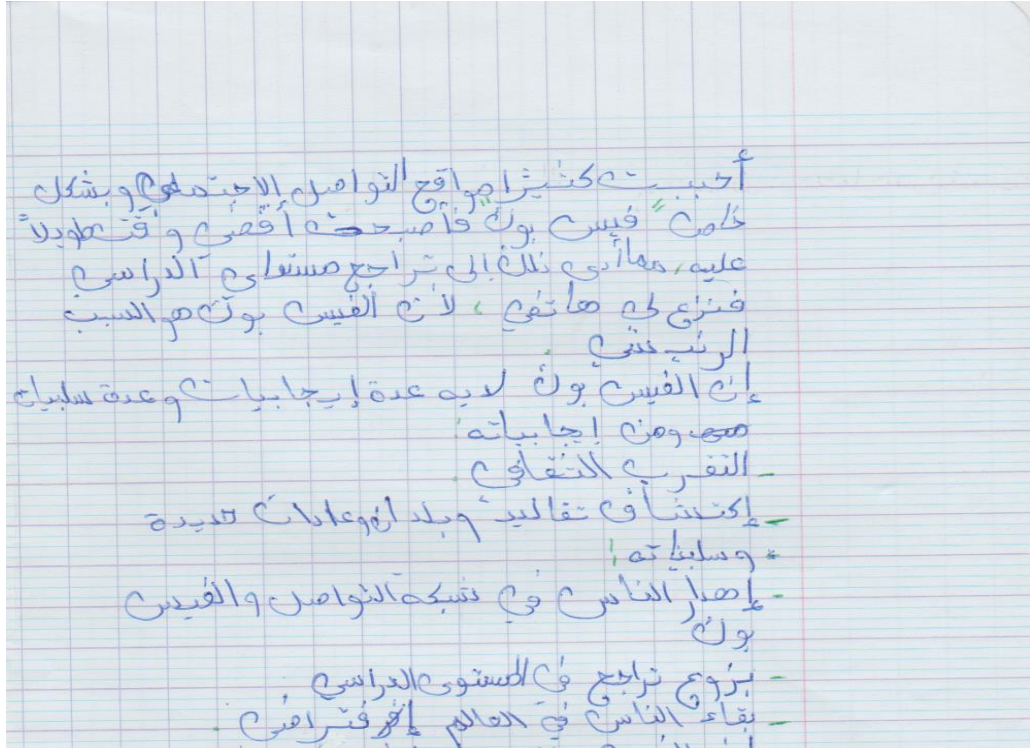 أحببت كثيرا مواقع التواصل الإجتماعي وبشكل
خاص " فيس بوك فأصبحت أقضي وقت طويلاً
عليه، مما أدى ذلك إلى تراجع مستواي الدراسي
فنزع لي هاتفي ، لأن الفيس بوك هو السبب
الرئيسي .
إن الفيس بوك لديه عدة إيجابيات وعدة سلبيات
ومن إيجابياته:
- التقرب الثقافي .
- إكتشاف تقاليد وبلدان وعادات جديدة
* وسلبياته:
- إهدار الناس في شبكة التواصل والفيس
بوك
- بزوع تراجع في المستوى الدراسي
- بقاء الناس في العالم إفتراضي .